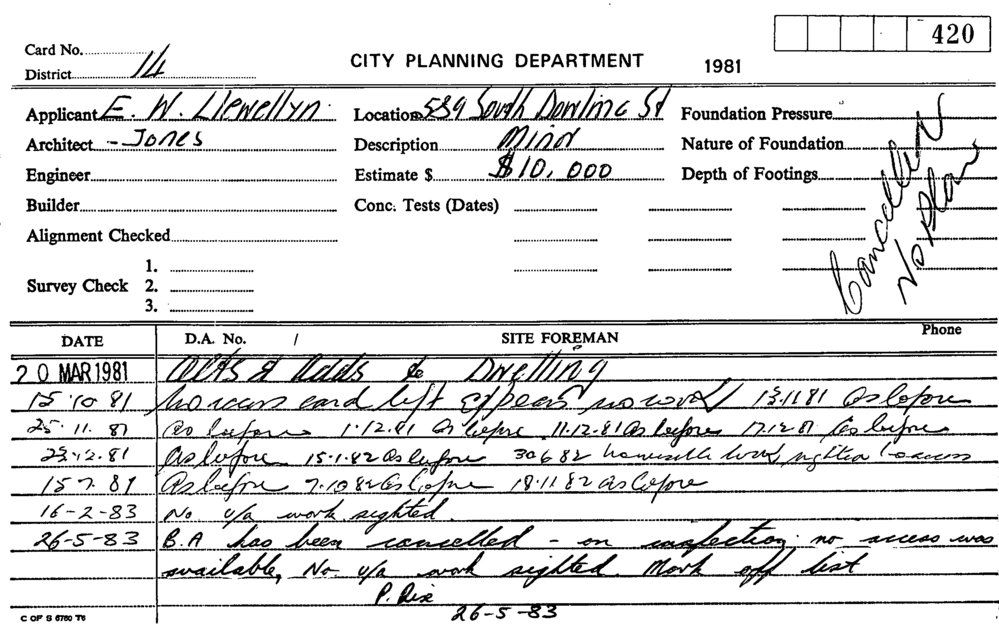 420
Card No.
District 14
CITY PLANNING DEPARTMENT 1981
Applicant E. W. Llewellyn. Location 589 South Dowling St Foundation Pressure
Architect - Jones Description Minor Nature of Foundation
Engineer Estimate $ $10,000 Depth of Footings
Builder Conc. Tests (Dates)
Alignment Checked
Survey Check 1.
2.
3.
Cancelled
No Plan
DATE D.A. No. / SITE FOREMAN Phone
20 MAR 1981 Alts & Adds to Dwelling
15.10.81 No access card left appears no work 13.11.81 As before
25.11.81 As before 1.12.81 As before 11.12.81 As before 17.12.81 As before
23.12.81 As before 15.1.82 As before 30.6.82 work sighted no access
15.7. As before 7.10.82 As before 18.11.82 As before
16-2-83 No u/a work sighted.
26-5-83 B.A has been cancelled - on inspection no access was
available, No u/a work sighted. Mark off list
P.
26-5-83
C OF S 6760 T6